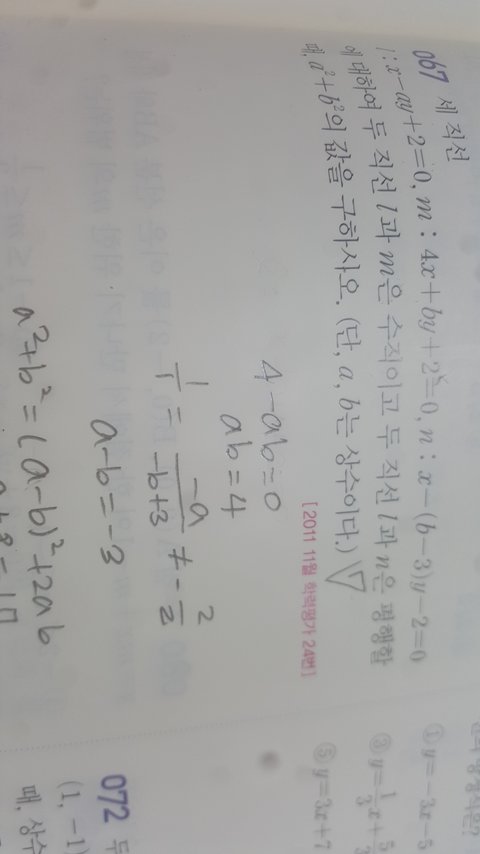 067 세 직선
l : x-ay+2=0, m : 4x+by+2=0, n : x-(b-3)y-2=0
에 대하여 두 직선 l과 m은 수직이고 두 직선 l과 n은 평행할
때, a²+b²의 값을 구하시오. (단, a, b는 상수이다.)
[2011 11월 학력평가 24번]
4-ab=0
ab=4
1/1 = -a/-b+3 ≠ -2/2
a-b=-3
a²+b²=(a-b)²+2ab
=17
① y=-3x-5
③ y=1/3x+5/3
⑤ y=3x+7
072 두
(1, -1)
때, 상수